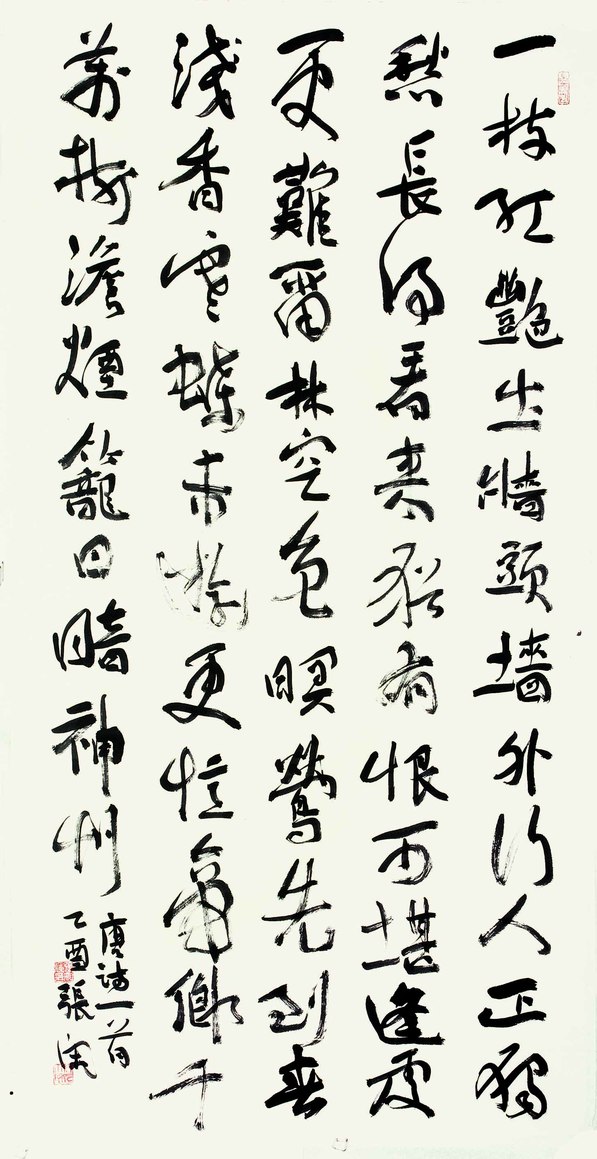 一枝紅艷出牆頭墻外行人正獨
愁長得看來猶有恨可堪逢處
更難留林空色暝鶯先到春
淺香寒蝶未游更憶帝鄉千
萬樹澹煙籠日暗神州
唐詩一首
乙酉張